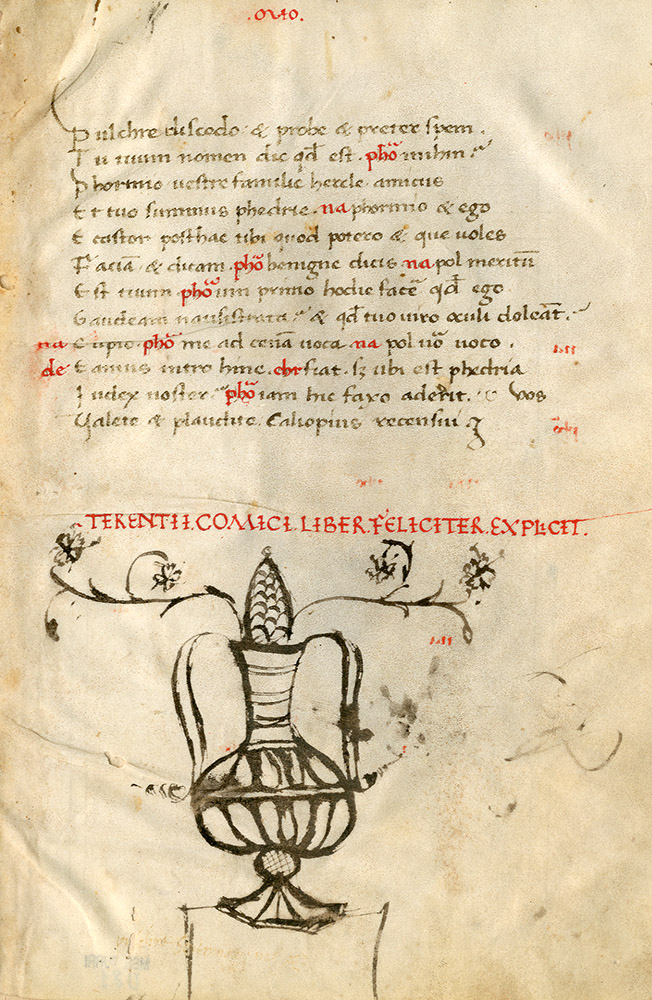 Pulchre discedo & probe & preter spem.
Tu tuum nomen dic qd̄ est. phō mihin?
Phormio uestre familie hercle amicus
Et tuo summus phedrie. na phormio & ego
E castor posthac tibi quod potero & que uoles
Faciā & dicam. phō benigne dicis na pol meritū
Est tuum. phō uin primo hodie facē qd̄ ego
Gaudeam nausistrata? & qd̄ tuo uiro oculi doleāt.?
na Cupio. phō me ad cenā uoca. na pol uō uoco.
de Eamus intro hinc. chr fiat. sꝫ ubi est phedria
Iudex noster? phō iam hic faxo aderit. Vos
Valete & plaudite. Caliopius recensui
TERENTII. COMICI. LIBER. FELICITER. EXPLICIT.